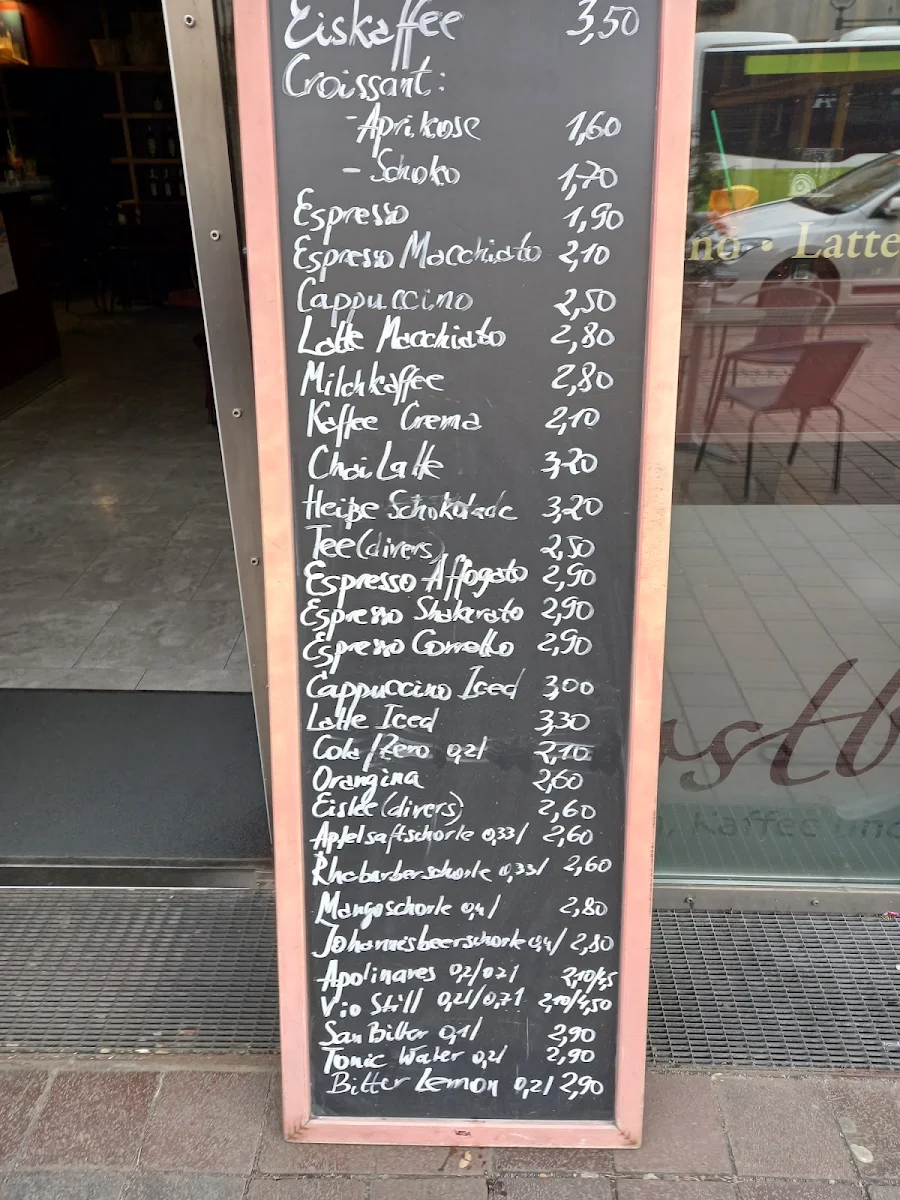 Eiskaffee 3,50
Croissant:
- Aprikose 1,60
- Schoko 1,70
Espresso 1,90
Espresso Macchiato 2,10
Cappuccino 2,50
Latte Macchiato 2,80
Milchkaffee 2,80
Kaffee Crema 2,10
Chai Latte 3,20
Heiße Schokolade 3,20
Tee (divers) 2,50
Espresso Affogato 2,90
Espresso Shakerato 2,90
Espresso 2,90
Cappuccino Iced 3,00
Latte Iced 3,30
Cola/Zero 0,2l 2,10
Orangina 2,60
Eistee (divers) 2,60
Apfelsaftschorle 0,33l 2,60
Rhabarberschorle 0,33l 2,60
Mangoschorle 0,4l 2,80
Johannisbeerschorle 0,4l 2,80
Apolinares 0,2l/0,2l 2,10/4,5
Vio Still 0,2l/0,7l 2,10/4,50
San Bitter 0,1l 2,90
Tonic Water 0,2l 2,90
Bitter Lemon 0,2l 2,90
no • Latte
stb
, Kaffee und